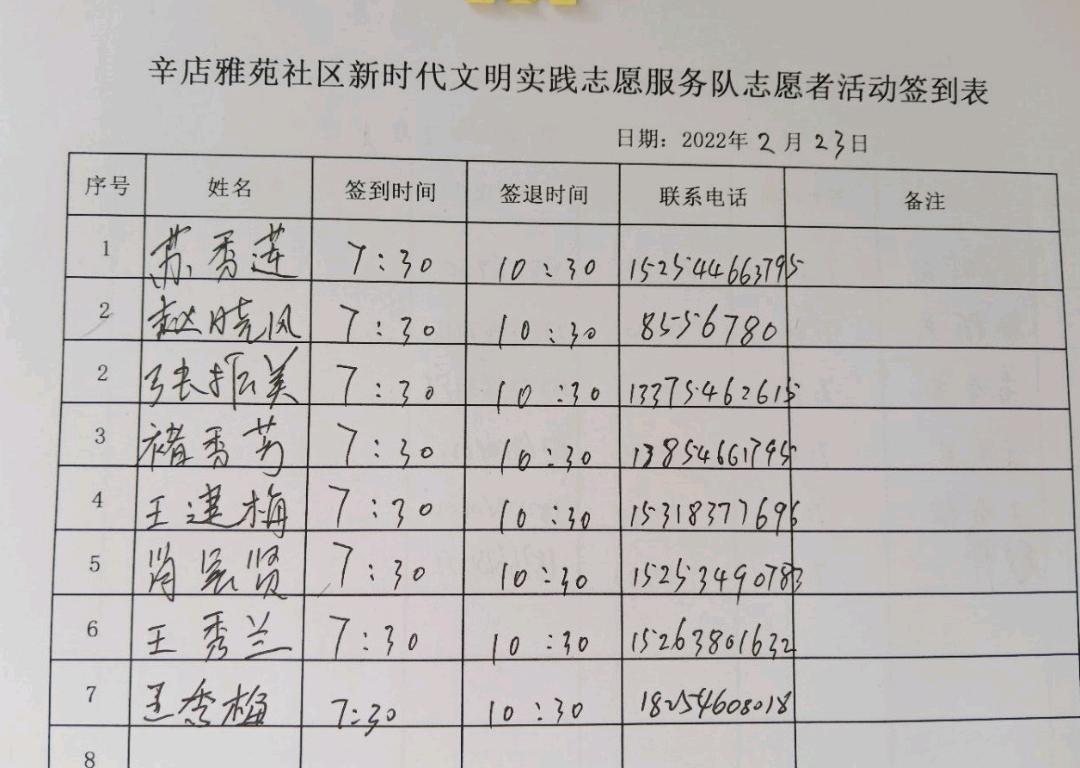 辛店雅苑社区新时代文明实践志愿服务队志愿者活动签到表
日期：2022年2月23日
序号 姓名 签到时间 签退时间 联系电话 备注
1 苏秀莲 7:30 10:30 152544663795
2 赵晓风 7:30 10:30 8556780
2 张振美 7:30 10:30 13375462615
3 褚秀芳 7:30 10:30 13854661795
4 王建梅 7:30 10:30 15318377696
5 肖 贤 7:30 10:30 15253490783
6 王秀兰 7:30 10:30 15263801632
7 王秀梅 7:30 10:30 18254608018
8